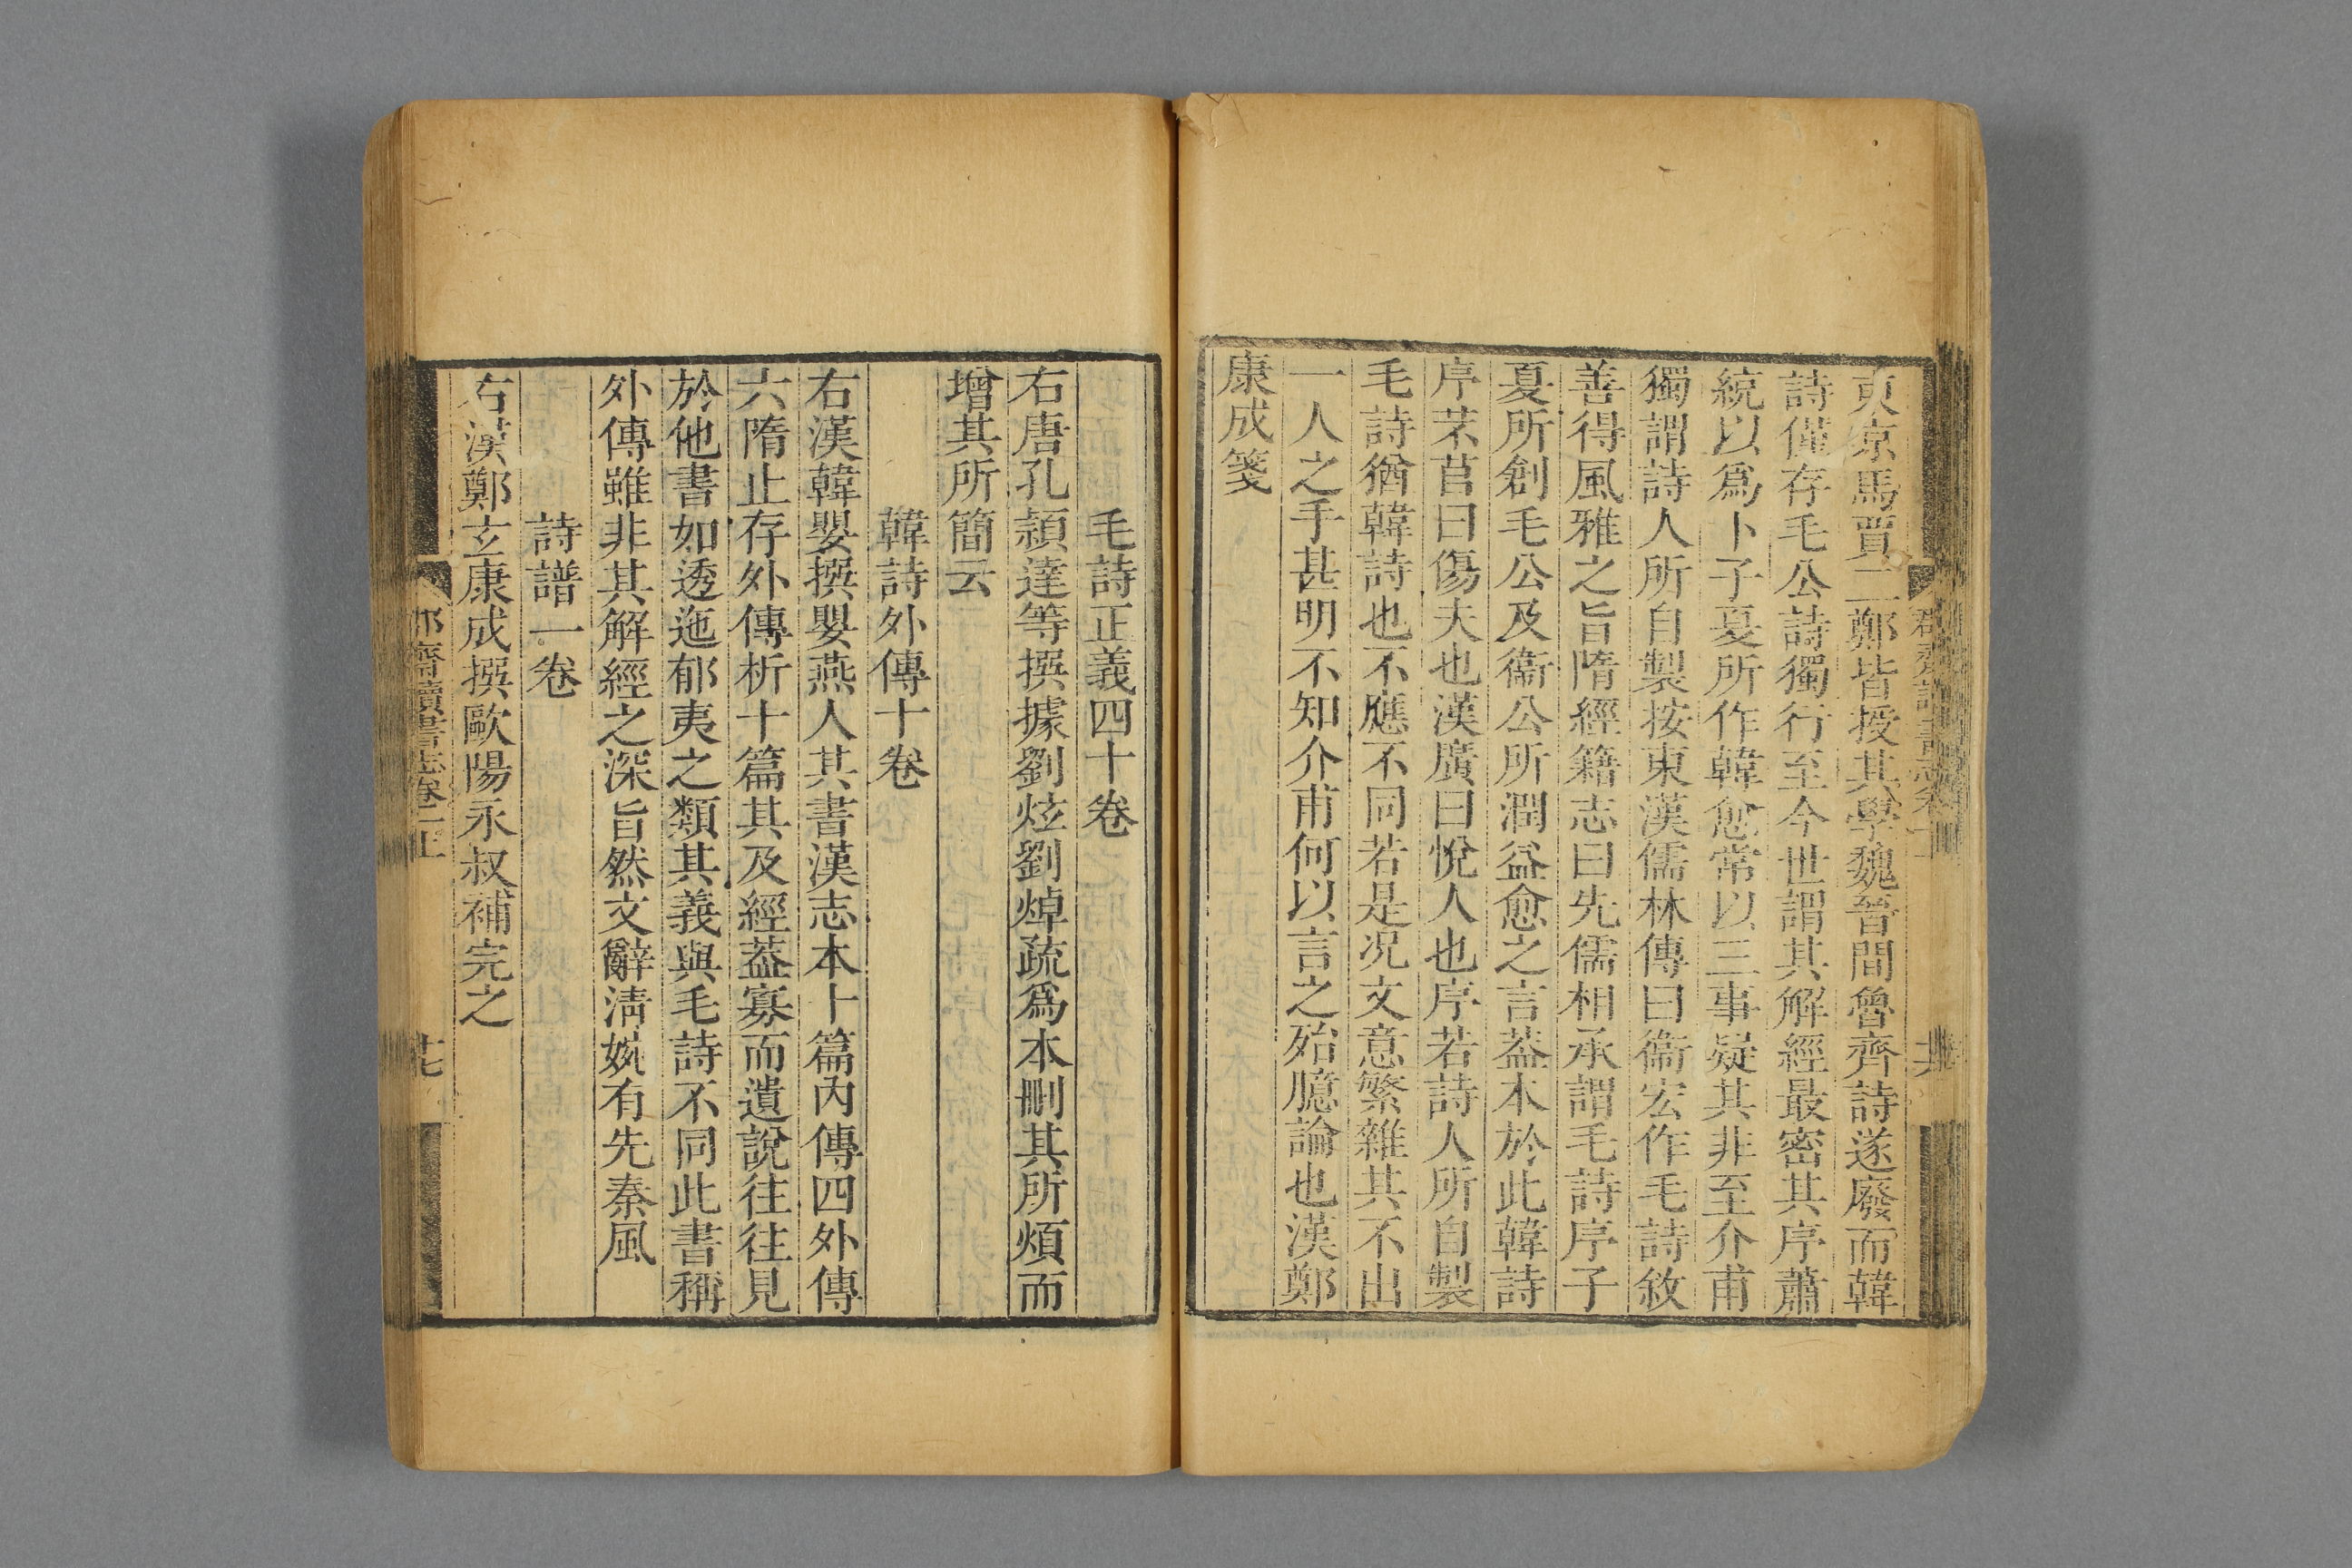 東京馬賈二鄭皆授其學魏晉間魯齊詩遂廢而韓
詩僅存毛公詩獨行至今世謂其解經最密其序蕭
統以爲卜子夏所作韓愈常以三事疑其非至介甫
獨謂詩人所自製按東漢儒林傳曰衞宏作毛詩敘
善得風雅之旨隋經籍志曰先儒相承謂毛詩序子
夏所創毛公及衞公所潤益愈之言葢本於此韓詩
序芣苢曰傷夫也漢廣曰悅人也序若詩人所自製
毛詩猶韓詩也不應不同若是况文意繁雜其不出
一人之手甚明不知介甫何以言之殆臆論也漢鄭
康成箋
毛詩正義四十卷
右唐孔頴達等撰據劉炫劉焯疏爲本刪其所煩而
增其所簡云
韓詩外傳十卷
右漢韓嬰撰嬰燕人其書漢志本十篇內傳四外傳
六隋止存外傳析十篇其及經葢寡而遺說往往見
於他書如透迤郁夷之類其義與毛詩不同此書稱
外傳雖非其解經之深旨然文辭淸婉有先秦風
詩譜一卷
右漢鄭玄康成撰歐陽永叔補完之
郡齋讀書志卷一上
十七